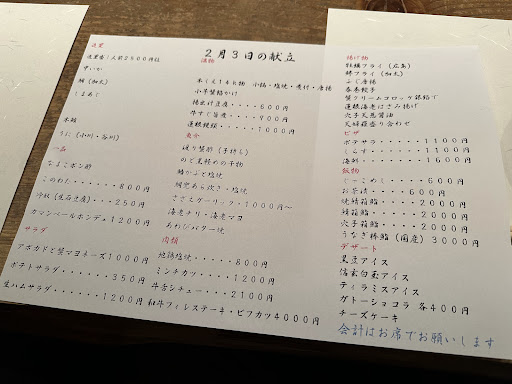 2月3日の献立
造里
造里盛一人前2500円位
中いか
鯖(加太)
しまあじ
本鮪
うに(小川・谷川)
一品
なまこポン酢
このわた・・・・・・・800円
カマンベールホンデュ1200円
サラダ
アボカドと蟹マヨネーズ1000円
ポテトサラダ・・・・・・350円
生ハムサラダ・・・・・・1200円
揚出け豆腐・・・・600円
牛すじ旨煮・・・・・900円
蓮根饅頭・・・・・・1000円
魚介
のど黒軽めの干物
鯛かぶと塩焼
鯛兜あら炊き・塩焼
ささエガーリック・・1000円~
海老チリ・海老マヨ
あわびバター焼
肉類
地鶏塩焼・・・・・・800円
ミンチカツ・・・・・1200円
牛舌シチュー・・・・2100円
和牛フィレステーキ・ビフカツ4000円
揚げ物
牡蠣フライ(広島)
鯵フライ(加太)
ふぐ唐揚
春巻餃子
蟹クリームコロッケ銀餡で
蓮根海老はさみ揚げ
穴子天黒醤油
天婦羅盛り合わせ
ピザ
ポテサラ・・・・・・1100円
しらす・・・・・・・1100円
海鮮・・・・・・・・1600円
飯物
お茶漬・・・・・・600円
焼鯖箱鮨・・・・・2000円
鯖箱鮨・・・・・・2000円
穴子箱鮨・・・・・2000円
うなぎ棒鮨(国産)3000円
デザート
黒豆アイス
信玄白玉アイス
ティラミスアイス
ガトーショコラ 各400円
チーズケーキ
会計はお席でお願いします